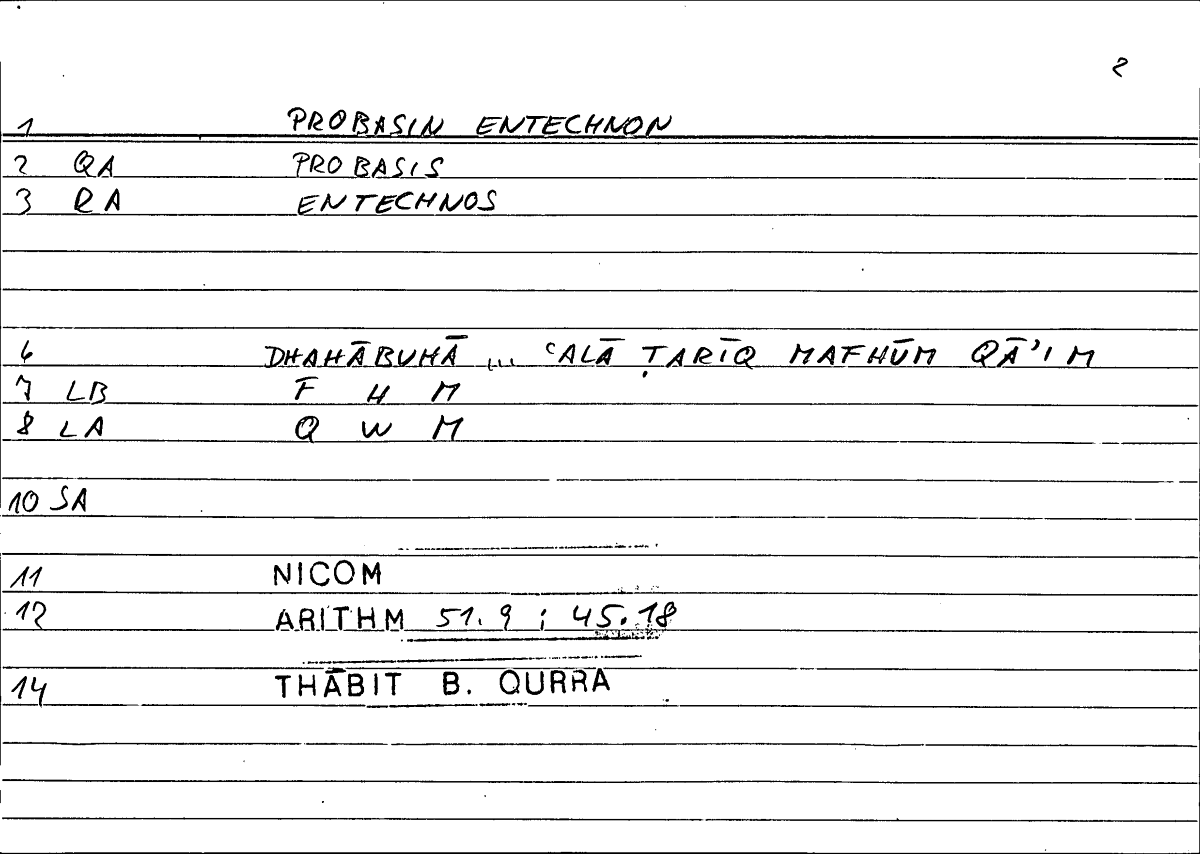 2
1 PROBASIN ENTECHNON
2 QA PROBASIS
3 RA ENTECHNOS
6 DHAHĀBUHĀ ... ʿALĀ ṬARĪQ MAFHŪM QĀʾIM
7 LB F H M
8 LA Q W M
10 SA
11 NICOM
12 ARITHM 51.9 ; 45.18
14 THĀBIT B. QURRA